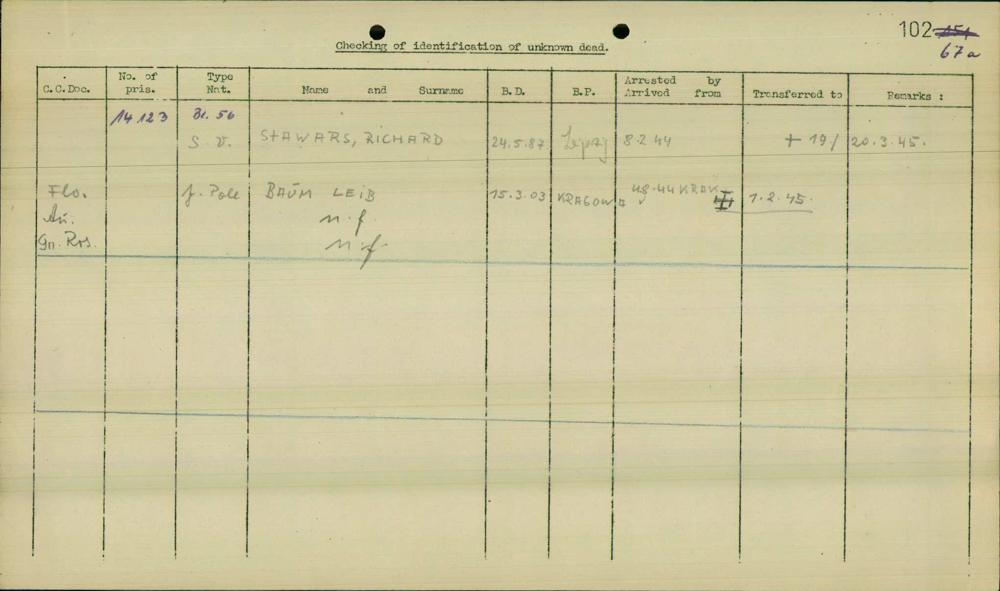 102 151
67a
Checking of identification of unknown dead.
C.C.Doc. No. of pris. Type Nat. Name and Surname B.D. B.P. Arrested by Arrived from Transferred to Remarks :
14123 Bl. 56
S.V. STAWARS, RICHARD 24.5.87 Leipzg 8.2.44 + 19/ 20.3.45.
Flo. J. Pole BAUM LEIB 15.3.03 KRAGOW KRAK III 1.2.45.
Au. n.f.
Gn. Ros. n.f.